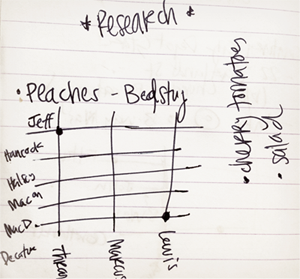 * Research *
• Peaches - Bedstuy
Jeff
Hancock
Halsey
Macon
MacD.
Decatur
Marcus
Lewis
• cherry tomatoes
• salad